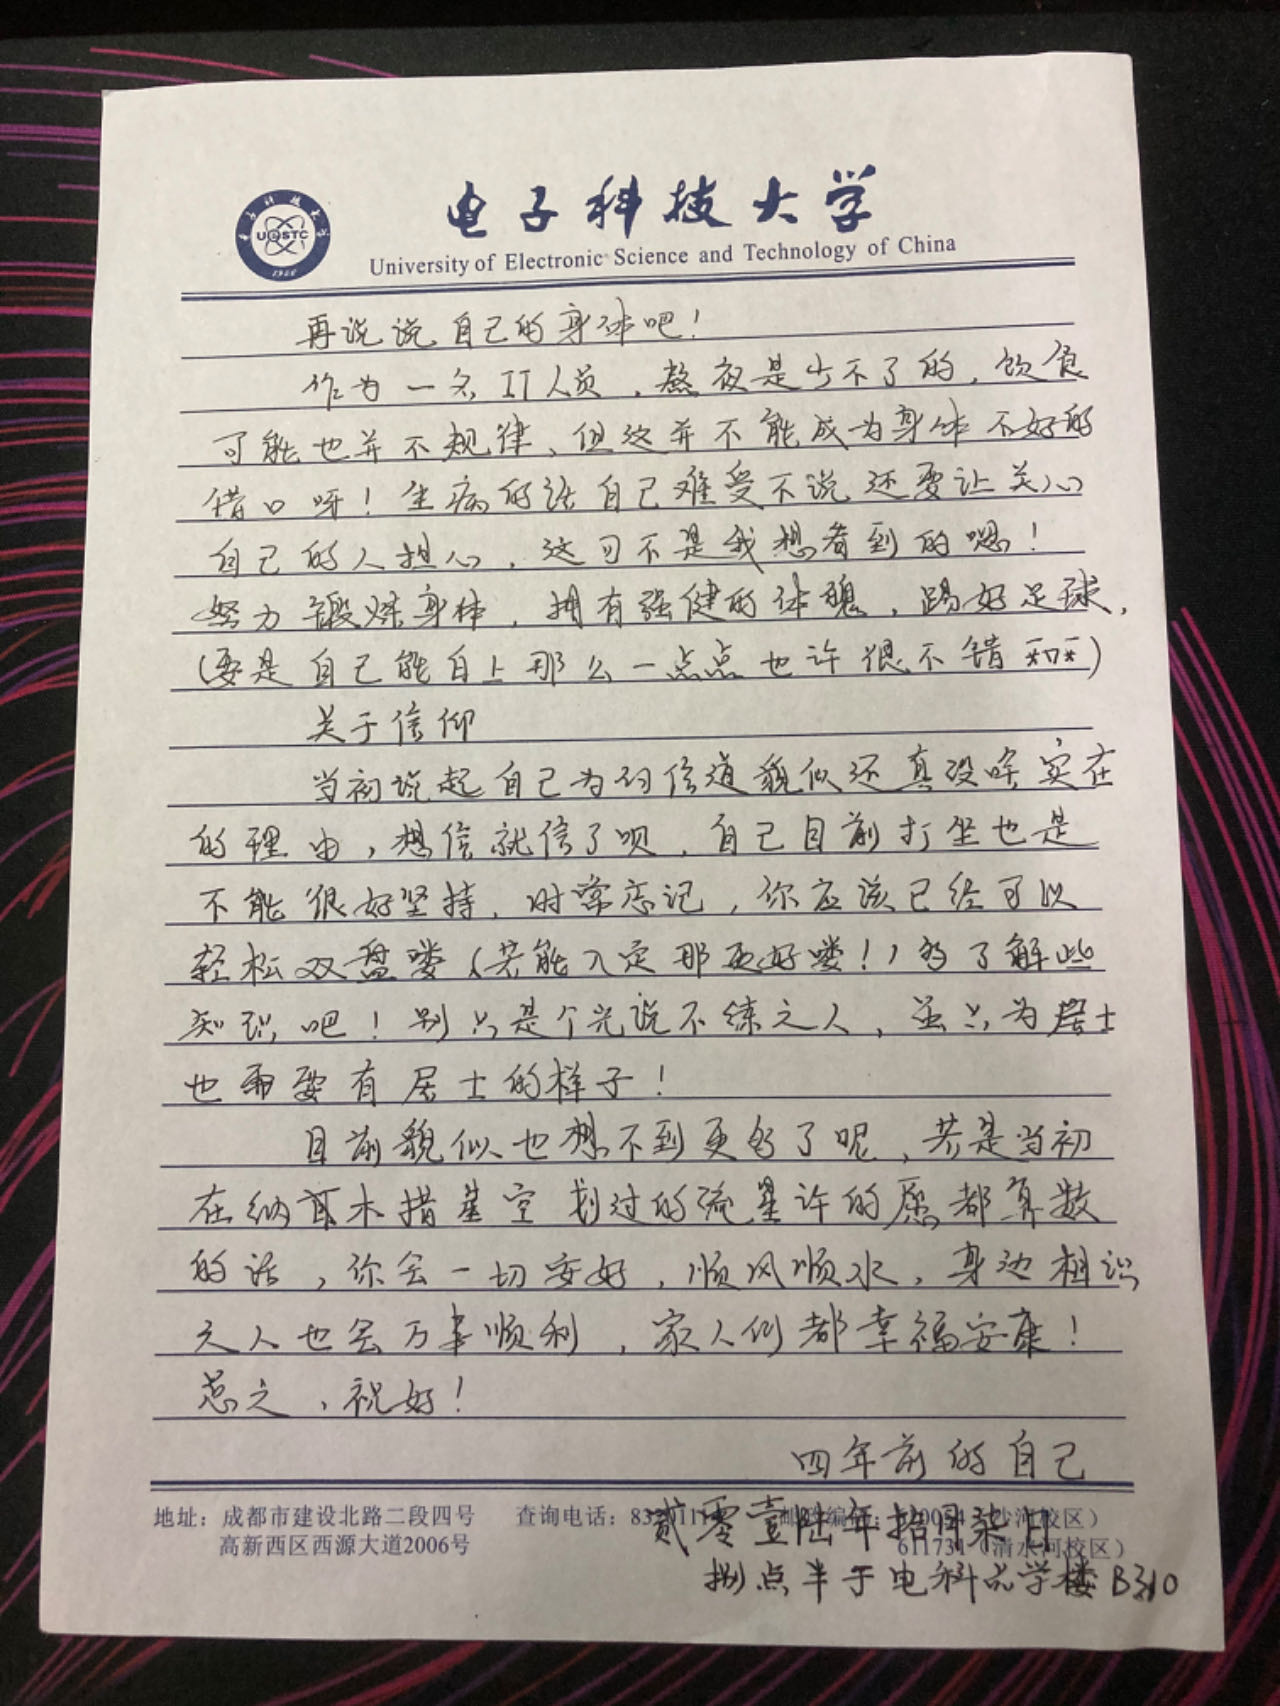 电子科技大学
University of Electronic Science and Technology of China
UESTC
1956
再说说自己的身体吧！
作为一名IT人员，熬夜是少不了的，饮食
可能也并不规律、但这并不能成为身体不好的
借口呀！生病的话自己难受不说还要让关心
自己的人担心，这可不是我想看到的嗯！
努力锻炼身体，拥有强健的体魄，踢好足球，
（要是自己能白上那么一点点也许很不错）
关于信仰
当初说起自己为何信道貌似还真没啥实在
的理由，想信就信了呗，自己目前打坐也是
不能很好坚持，时常忘记，你应该已经可以
轻松双盘喽（若能入定那更好喽！）多了解些
知识吧！别只是个光说不练之人，虽只为居士
也需要有居士的样子！
目前貌似也想不到更多了呢，若是当初
在纳木措星空划过的流星许的愿都算数
的话，你会一切安好，顺风顺水，身边相识
之人也会万事顺利，家人们都幸福安康！
总之，祝好！
四年前的自己
地址：成都市建设北路二段四号 查询电话：
高新西区西源大道2006号 611731（清水河校区）
贰零壹陆年拾月柒日
捌点半于电科品学楼B310